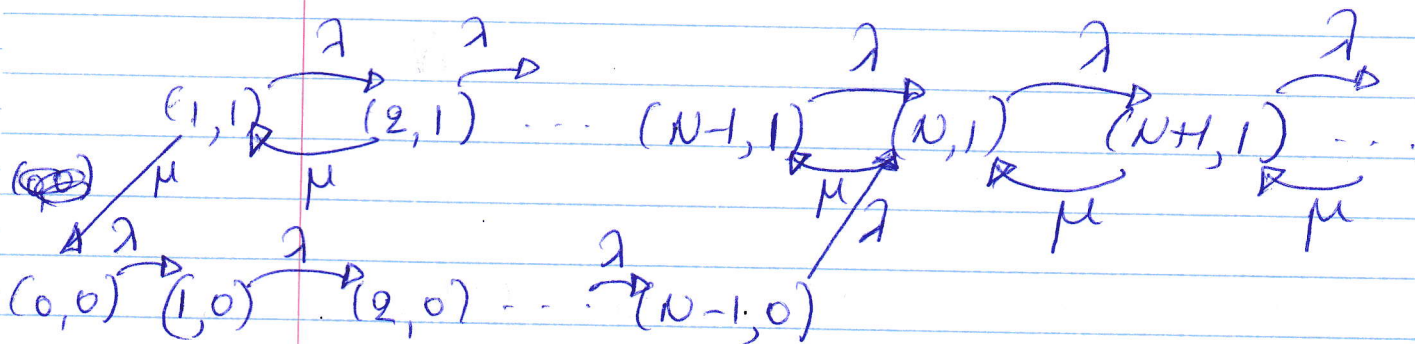 λ λ λ λ λ
(1,1) (2,1) .... (N-1,1) (N,1) (N+1,1) ....
μ μ μ μ μ
λ λ λ λ
(0,0) (1,0) (2,0) .... (N-1,0)